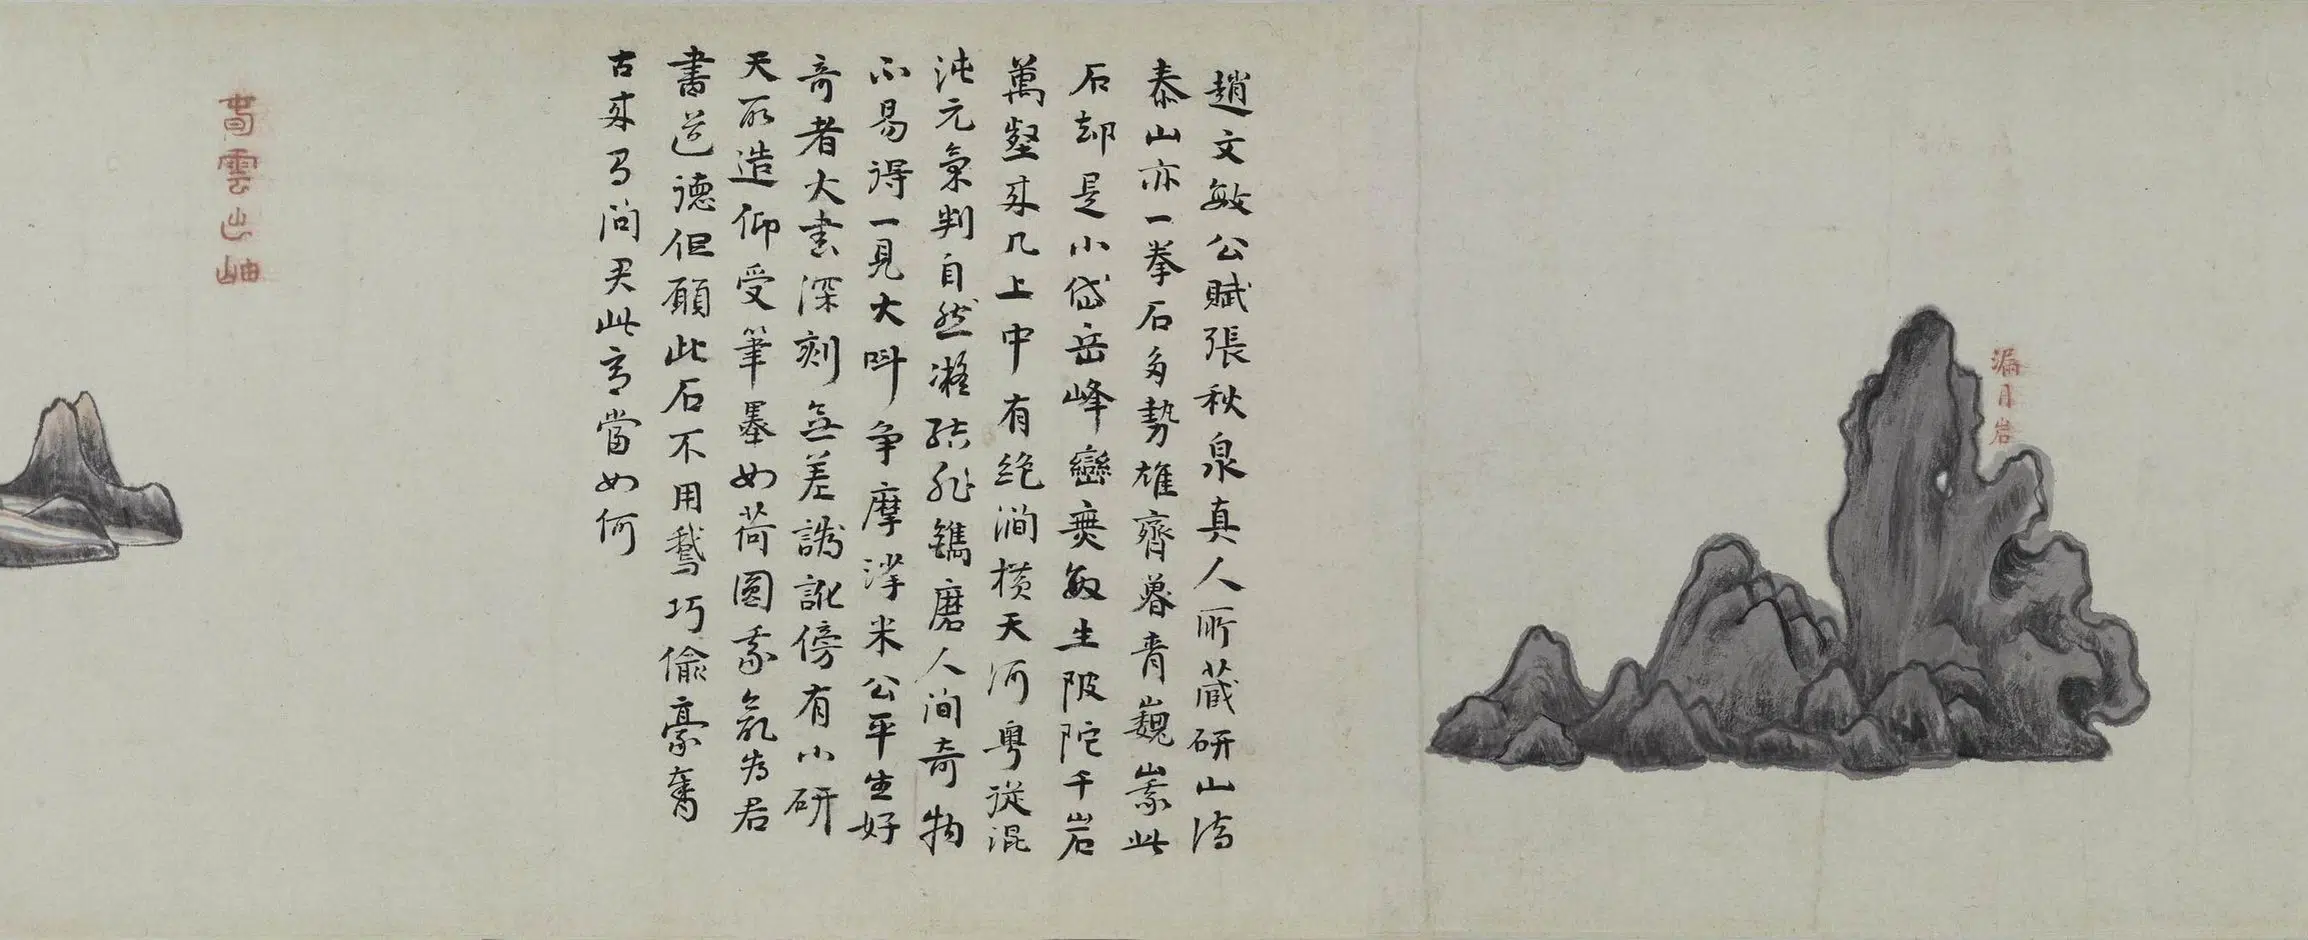 漏月岩
趙文敏公賦張秋泉真人所藏研山詩
泰山亦一拳石多勢雄齊魯青巍峩此
石却是小岱岳峰巒無數生陂陀千岩
萬壑來几上中有絕澗橫天河粵從混
沌元氣判自然凝結非鐫磨人間奇物
不易得一見大呌爭摩挲米公平生好
奇者大書深刻無差譌訛傍有小研
天所造仰受筆墨如荷圓我氣為君
書道德但願此石不用鵝巧偷豪奪
古來多問君此意當如何
旾雲出岫